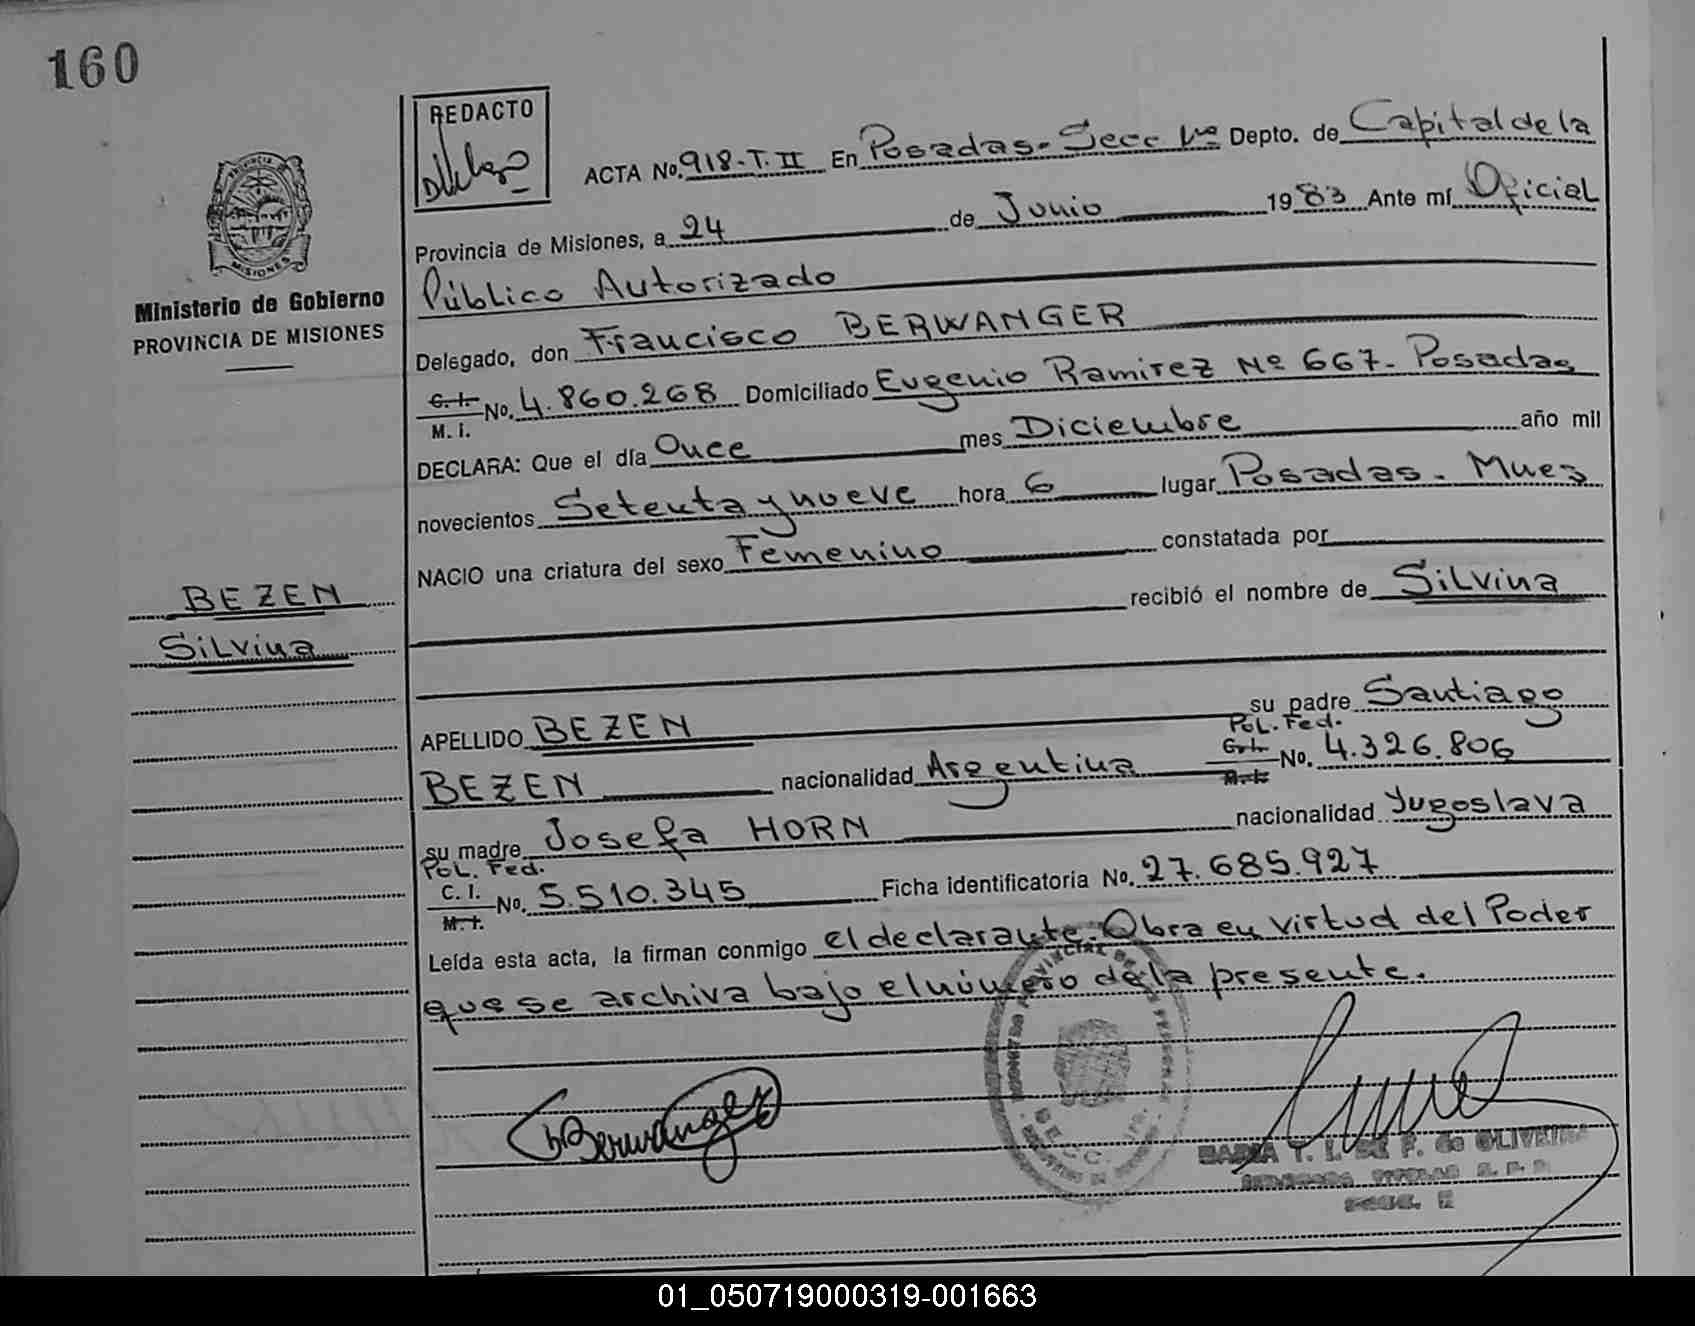 160
REDACTO
ACTA No. 918-T.II En Posadas-Secc 1ra Depto. de Capital de la
Provincia de Misiones, a 24 de Junio 1983 Ante mí Oficial
Público Autorizado
MISIONES
Ministerio de Gobierno
PROVINCIA DE MISIONES
Delegado, don Francisco BERWANGER
C. I. M. I. No. 4.860.268 Domiciliado Eugenio Ramirez Nº 667- Posadas
DECLARA: Que el día Once mes Diciembre año mil
novecientos Setenta y nueve hora 6 lugar Posadas. Mnes
NACIO una criatura del sexo Femenino constatada por
BEZEN
Silvina
recibió el nombre de Silvina
APELLIDO BEZEN su padre Santiago
BEZEN nacionalidad Argentina Pol. Fed. C. I. M. I. No. 4.326.806
su madre Josefa HORN nacionalidad Yugoslava
Pol. Fed.
C. I. M. I. No. 5.510.345 Ficha identificatoria No. 27.685.927
Leída esta acta, la firman conmigo el declarante. Obra en virtud del Poder
que se archiva bajo el número de la presente.
Berwanger
de OLIVEIRA
01_050719000319-001663